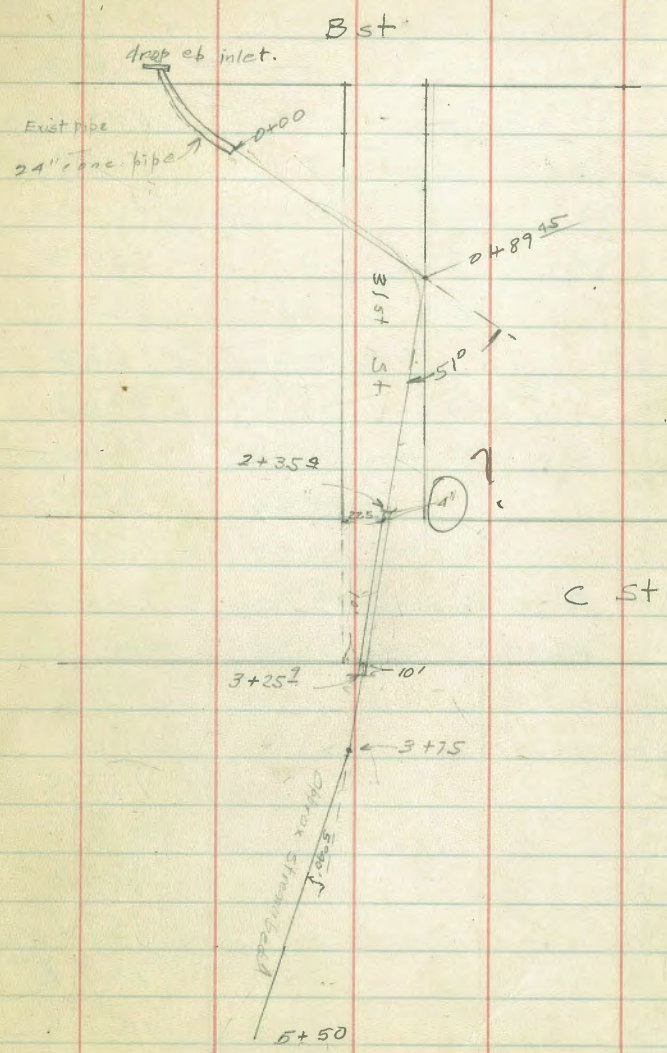 B st
drop cb inlet.
Exist pipe
24" conc. pipe
0+00
0+89 45
31st St.
51°
2+35 9
22.5
4"
?
10'
C st
3+25 9
10'
3+75
Approx streambed
5+50